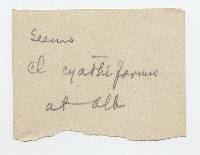 Seems
Cl cyathiforme
at Alb